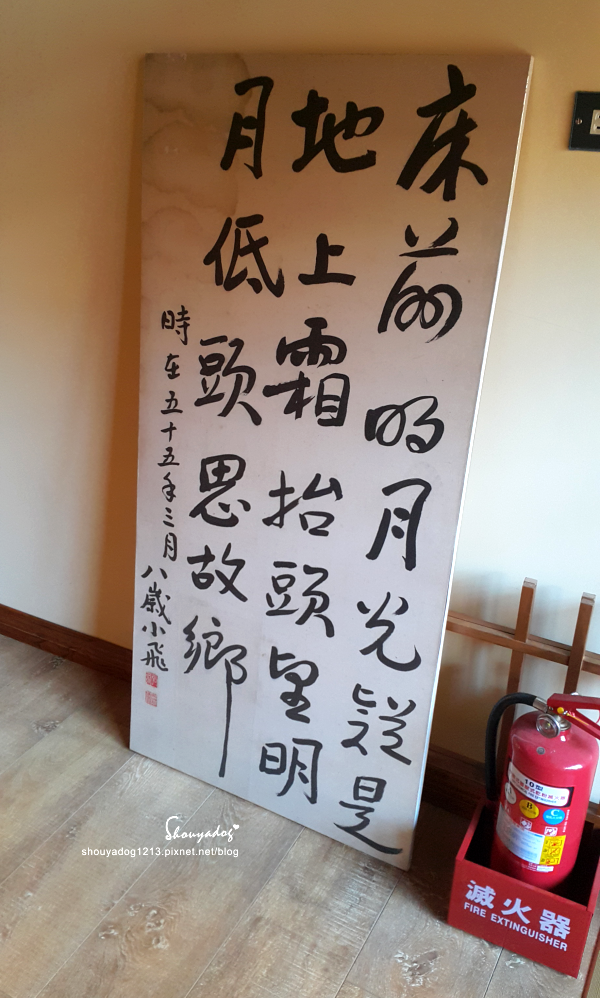 床前明月光疑是
地上霜抬頭望明
月低頭思故鄉
時在五十五年三月八歲小飛
Shouyadog
shouyadog1213.pixnet.net/blog
10型
B
C
滅火器
FIRE EXTINGUISHER